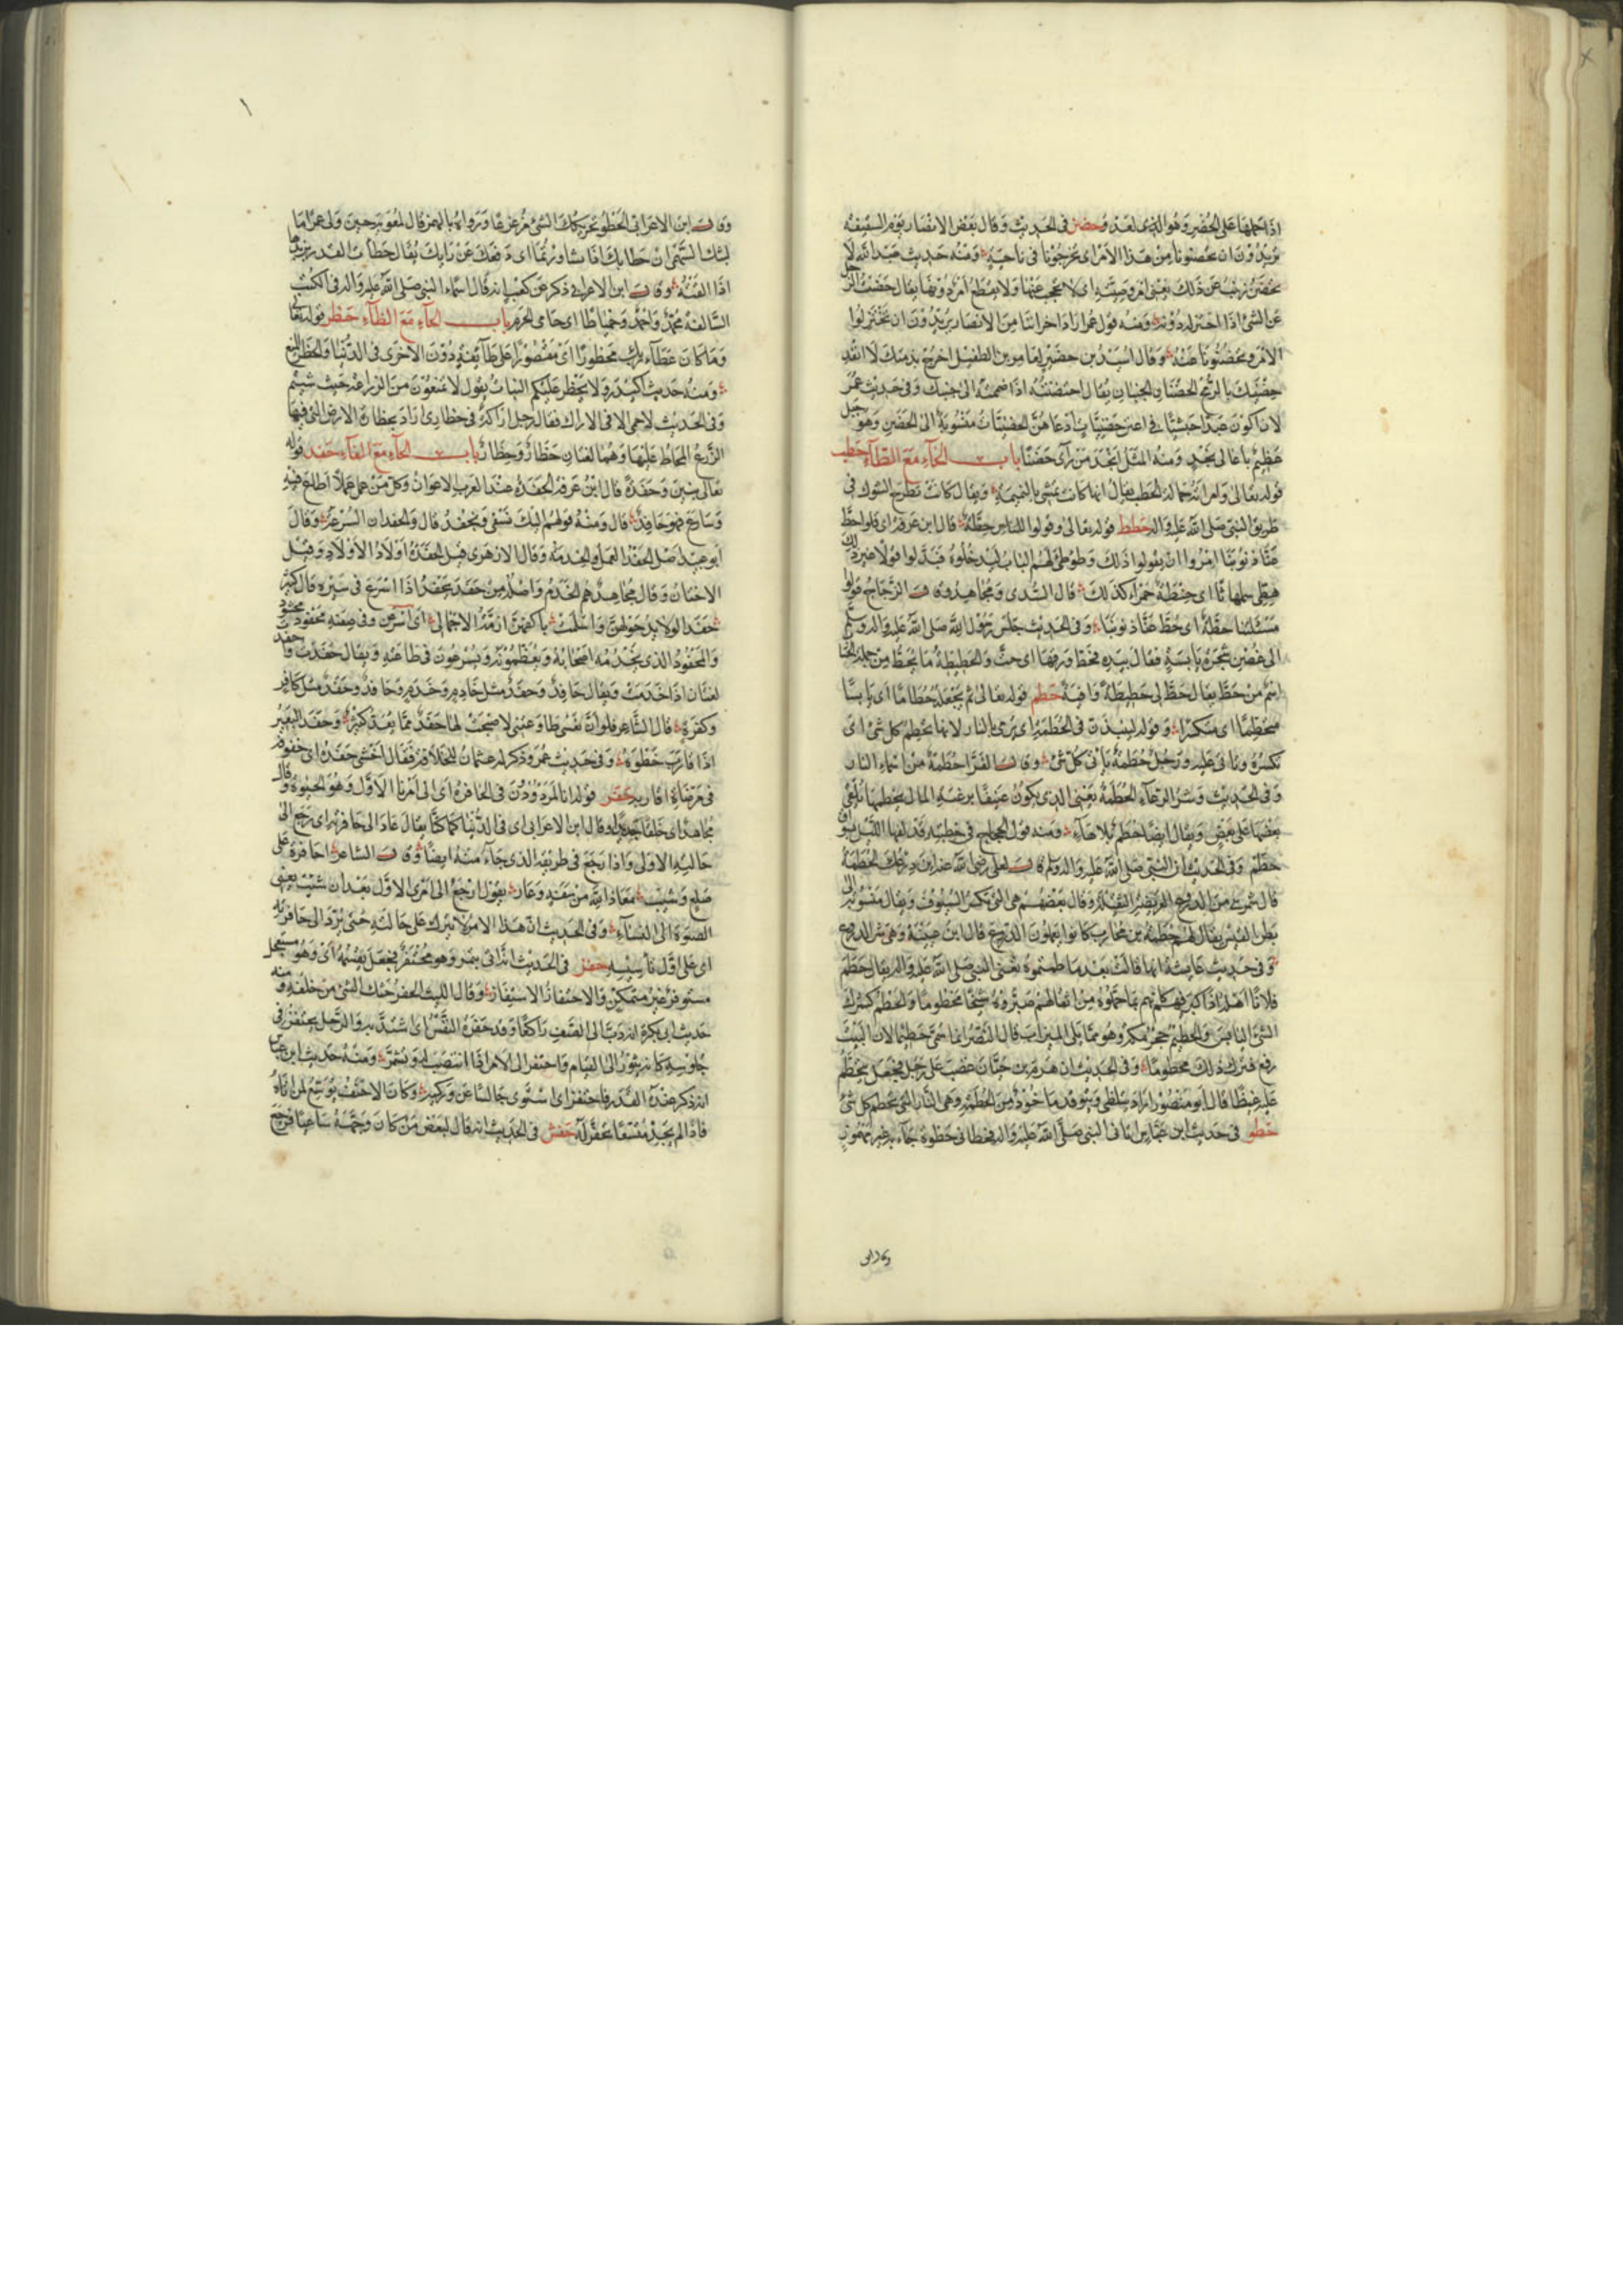 اذا حملها على الحضر وهو الذى لغد وحضن فى الحديث وقال بعض الانصار يوم السقيفه
يريدون ان يحضنونا من هذا الامر اى يخرجونا فى ناحية ومنه حديث عبد الله لا
تحضن زينب عن ذلك يعنى امر وصيته اى لا تحجب عنها ولا يقطع امر دونها يقال حضنت الرجل
عن الشئ اذا اختزله دونه ومنه قول عمر اراد اخواننا من الانصار يريدون ان يختزلوا
الامر ويحضنونا عنه وقال اسيد بن حضير لعامر بن الطفيل اخرج بذمتك لا انفذ
حضنيك بالرمح الحضنان الجنبان يقال احتضنته اذا ضممته الى جنبك وفى حديث عمر
لان اكون عبدا حبشيا فى اعنز حضنيات ارعاهن الحضنيات منسوبة الى الحضن وهو جبل
عظيم باعالى نجد ومنه المثل انجد من رأى حضنا باب الحاء مع الطاء حطب
قوله تعالى وامراته حمالة الحطب يقال انها كانت تمشى بالنميمة ويقال كانت تطرح الشوك فى
طريق النبى صلى الله عليه واله حطط قوله تعالى وقولوا للناس حطة قال ابن عرفة اى قولوا حط
عنا ذنوبنا امروا ان يقولوا ذلك وطوطئ لهم الباب ليدخلوه فبدلوا قولا غير ذلك
هطى سمهاثا اى حنطة حمراء كذلك قال السدى ومجاهد وقال الزجاج قولوا
مسئلتنا حطة اى حط عنا ذنوبنا وفى الحديث جلس رسول الله صلى الله عليه واله وسلم
الى غصن شجرة يابسة فقال بيده فحط ورقها اى حت والحطيطة ما يحط من جملة الحساب
اسم من حط يقال حط لى حطيطة وافية حطم قوله تعالى ثم يجعله حطاما اى يابسا
متحطما اى متكسرا وقوله لينبذن فى الحطمة اى يرمى بالنار لانها تحطم كل شئ اى
تكسره وتاتى عليه ورجل حطمة ياتى كل شئ وقال الفرا حطمة من اسماء النار
وفى الحديث وشر الرعاء الحطمة يعنى الذى يكون عنيفا برعية المال يحطمها يلقى
بعضها على بعض ويقال ايضا حطم بلا هاء ومنه قول الحجاج فى خطبته قد لفها الليل بسواق
حطم وفى الحديث ان النبى صلى الله عليه واله وسلم قال لعلى رضى الله عنه اين درعك الحطمية
قال شمر هى من الدروع العريضة الثقيلة وقال بعضهم هى التى تكسر السيوف ويقال منسوبة الى
بطن القيس يقال لهم حطمة بن محارب كانوا يعملون الدروع قال ابن عيينة وهى شر الدروع
وفى حديث عايشة انها قالت بعد ما حطمتموه تعنى النبى صلى الله عليه واله يقال حطم
فلانا اهله اذا كبر فيهم كانهم بما حملوه من اثقالهم صيروه شيخا محطوما والحطم كسرك
الشئ اليابس والحطيم حجر مكة وهو مما يلى الميزاب قال النضر انما سمى حطيما لان البيت
رفع فترك ذلك محطوما وفى الحديث ان هرم بن حيان غضب على رجل فجعل يتحطم
عليه غيظا قال ابو منصور اراد يتلظى ويتوقد ماخوذ من الحطمة وهى النار التى تحطم كل شئ
خطو فى حديث ابن عباس اتانى النبى صلى الله عليه واله فحطانى حطوة جاء به غير مهموز
وقال ابن
وقال ابن الاعرابى الحطو تحريكك الشئ مزعزعا ورواه بالهمز قال لمعوية حين ولى عمرا ما
لبثك السهمى ان حطا بك اذا تشاورتما اى دفعك عن رايك يقال حطأت القدر بزبدها
اذا القته وقال ابن الاعرابى ذكر عن كعب انه قال اسماء النبى صلى الله عليه واله فى الكتب
السالفة محمد واحمد وحمياطا اى حامى الحرم باب الحاء مع الظاء حظر قوله تعالى
وما كان عطاء ربك محظورا اى مقصورا على طائفة دون الاخرى فى الدنيا والحظر المنع
ومنه حديث اكيدر ولا يحظر عليكم النبات يقول لا تمنعون من الزراعة حيث شيتم
وفى الحديث لا حمى الا فى الاراك فقال رجل اراكة فى حظارى اراد بحظاره الارض التى فيها
الزرع المحاط عليها وهما لغتان حظار وحظار باب الحاء مع الفاء حفد قوله
تعالى بنين وحفدة قال ابن عرفة الحفدة عند العرب الاعوان وكل من عمل عملا اطاع فيه
وسارع فهو حافد قال ومنه قولهم اليك نسعى ونحفد قال والحفدان السرعة وقال
ابو عبيد اصل الحفد العمل والخدمة وقال الازهرى قيل الحفدة اولاد الاولاد وقيل
الاختان وقال مجاهد هم الخدم واصله من حفد يحفد اذا اسرع فى سيره قال كثير
حفد الولايد حولهن واسلمت باكفهن ازمة الاجمال اى اسرعن وفى صفته محفود محشود
والمحفود الذى يخدمه اصحابه ويعظمونه ويسرعون فى طاعته ويقال حفدت واحفدت
لغتان اذا خدمت ويقال حافد وحفد مثل خادم وخدم وحافد وحفدة مثل كافر
وكفرة قال الشاعر فلو ان نفسى طاوعتنى لاصبحت لها حفد مما يعد كثير وحفد البعير
اذا قارب خطوه وفى حديث عمر وذكر له عثمان للخلافة فقال اخشى حفده اى خفوفه
فى مرضاة اقاربه حفر قوله انا لمردودون فى الحافرة اى الى امرنا الاول وهو الحيوة وقال
مجاهد اى خلقا جديدا وقال ابن الاعرابى اى فى الدنيا كما كنا يقال عاد الى حافرته اى رجع الى
حالته الاولى واذا رجع فى طريقه الذى جاء منه ايضا وقال الشاعر احافرة على
صلع وشيب معاذ الله من سفه وعار يقول ارجع الى امرى الاول بعد ان شبت يعنى
الصبوة الى النساء وفى الحديث ان هذا الامر لا يترك على حالته حتى يرد الى حافرته
اى على اول تاسيسه حفز فى الحديث انه اتى بتمر وهو محتفز فجعل يقسمه اى وهو مستعجل
مستوفز غير متمكن والاحتفاز الاستيفاز وقال الليث الحفز حثك الشئ من خلفه ومنه
حديث ابى بكرة انه دب الى الصف راكعا وقد حفزه النفس اى اشتد به والرجل يحتفز فى
جلوسه كانه يثور الى القيام واحتفز الى الامر اذا انتصب له وتشمر ومنه حديث ابن عباس
انه ذكر عنده القدر فاحتفز اى استوى جالسا عن وركيه وكان الاحنف يوسع لمن اتاه
فاذا لم يجد متسعا تحفز له حفش فى الحديث انه قال لبعض من كان وجهه ساعيا فرجع